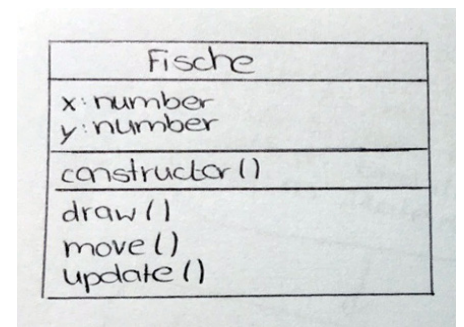 Fische
x: number
y: number
constructor()
draw()
move()
update()